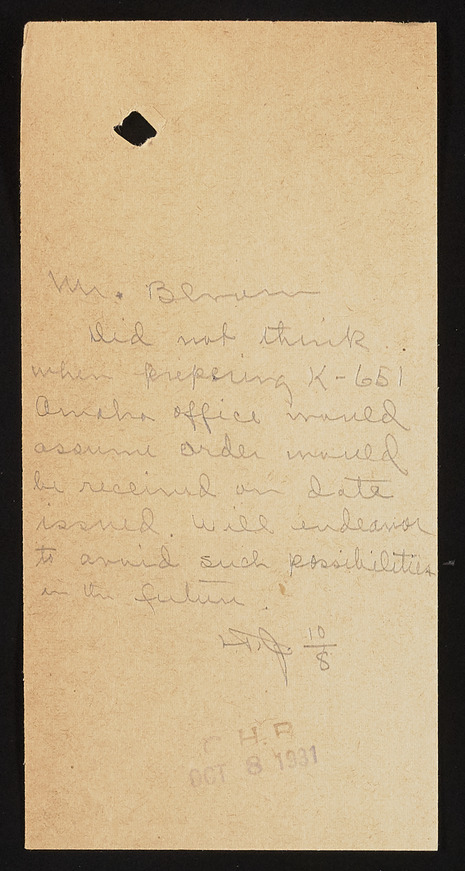 Mr.
Did not think
when preparing K-651
Omaha office would
assume order would
be received on date
issued. Will endeavor
to avoid such possibilities
in the future.
10/8
H.P.
OCT 8 1931